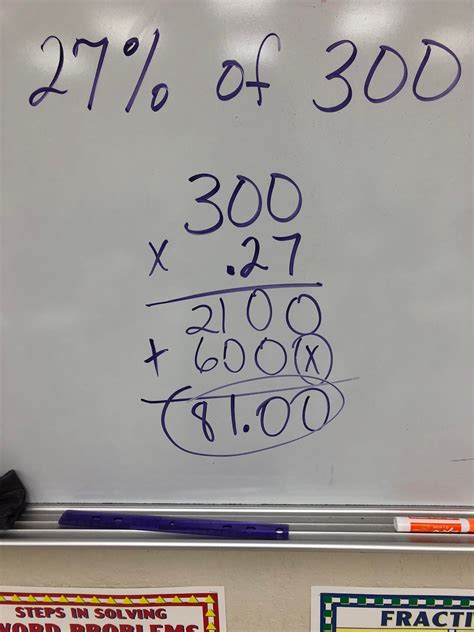 27% of 300
300
x .27
2100
+ 600(x)
81.00
STEPS IN SOLVING
WORD PROBLEMS
FRACTI